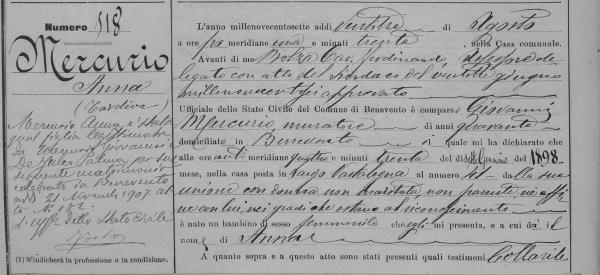 Numero 118
Mercurio
Anna
(Tardiva)
Mercurio Anna è stata
qual figlia legittimata
da Mercurio Giovanni e
De Palma per sus-
seguente matrimonio
celebrato in Benevento
21 Novemb. 1907 at
to N. 182.
d'uffo dello Stato Civile
(1) S'indicherà la professione e la condizione.
L'anno millenovecentosette addì ventitre di Agosto
a ore pomeridiane una e minuti trenta, nella Casa comunale.
Avanti di me Bolza Cav. Ferdinando, de-
legato con atto del Sindaco del ventotto giugno
millenovecentosei approvato
Ufficiale dello Stato Civile del Comune di Benevento è comparso Giovanni
Mercurio muratore di anni quaranta
domiciliato in Benevento il quale mi ha dichiarato che
alle ore antimeridiane quattro e minuti trenta del dì 1898
mese, nella casa posta in Largo al numero 41 dalla sua
unione con donna non maritata, non parente nè affi-
ne con lui nei gradi che ostano al riconoscimento
è nato un bambino di sesso femminile che egli mi presenta, e a cui dà il
nome di Anna
A quanto sopra e a questo atto sono stati presenti quali testimoni Collarile